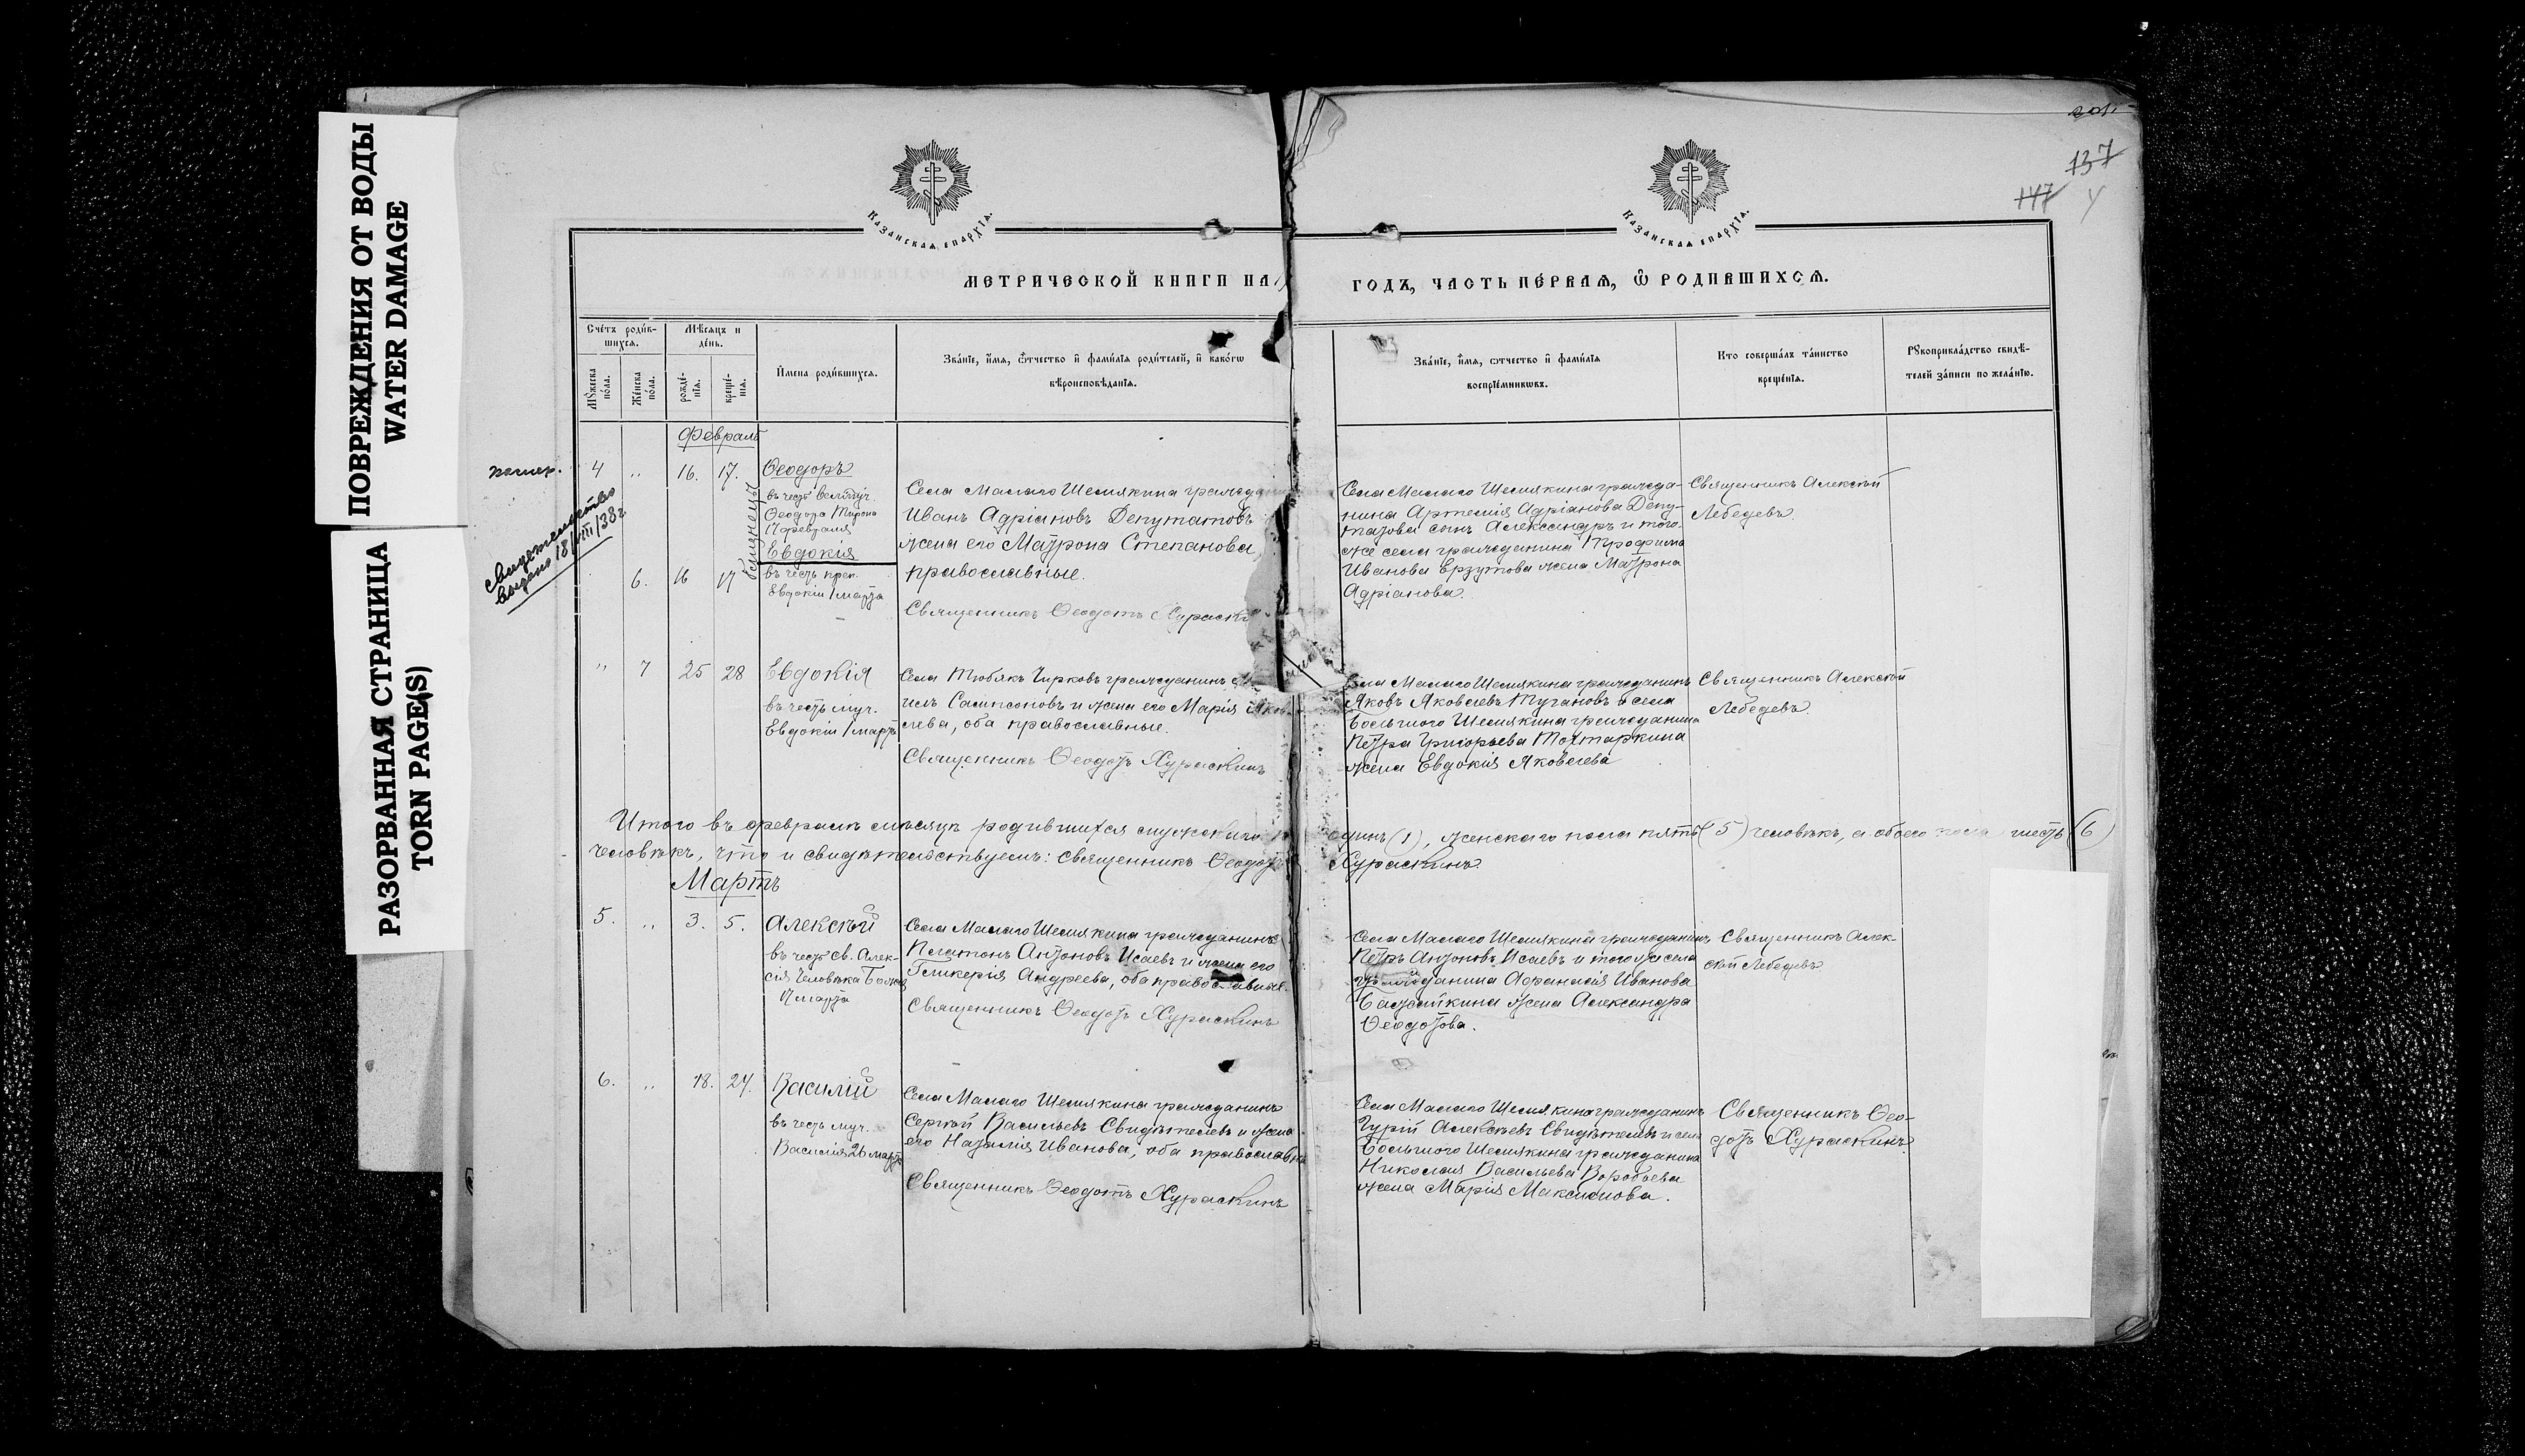 ПОВРЕЖДЕНИЯ ОТ ВОДЫ
WATER DAMAGE
РАЗОРВАННАЯ СТРАНИЦА
TORN PAGE(S)
137
147
Казанская епархїѧ.
Казанская епархїѧ.
МЕТРИЧЕСКОЙ КНИГИ НА
ГОДЪ, ЧАСТЬ ПЕ́РВАѦ, Ѽ РОДИВШИХСѦ.
Сче́тъ роди́в-
шихсѧ.
Мѣ́сѧцъ и
де́нь.
Мꙋ́жеска
по́ла.
Же́нска
по́ла.
рожде́-
нїѧ.
креще́-
нїѧ.
И́мена роди́вшихсѧ.
Зва́нїе, и́мѧ, ѻ҆́тчество и҆ фами́лїѧ роди́телей, и҆ како́гѡ
вѣроисповѣ́данїѧ.
Зва́нїе, и́мѧ, ѻ҆́тчество и҆ фами́лїѧ
воспрїе́мникѡвъ.
Кто соверша́лъ та́инство
креще́нїѧ.
Рꙋкоприкла́дство свидѣ́-
телей за́писи по жела́нїю.
Февраль
4 " 16. 17. Ѳеодоръ
въ честь великомуч.
Ѳеодора Тирона
17 февраля
близнецы
Евдокия
6. 16 17 въ честь преп.
Евдокіи 1 марта
Свидетельство
выдано 18/VIII/38 г.
Села Малаго Шемякина гражда
Иванъ Адріановъ Депутатовъ
жена его Матрона Степанова,
православные.
Священникъ Ѳеодотъ Хураск
Села Малаго Шемякина гражда-
нина Артемія Адріанова Депу-
татова сынъ Александръ и того-
же села гражданина Трофима
Иванова Ерзутова жена Матрона
Адріанова.
Священникъ Алексѣй
Лебедевъ.
" 7 25 28 Евдокія
въ честь муч.
Евдокіи 1 марта
Села Тюбякъ Чирковъ гражданинъ
илъ Сампсоновъ и жена его Марія Яков-
лева, оба православные.
Священникъ Ѳеодотъ Хураскинъ
Села Малаго Шемякина гражданинъ
Яковъ Яковлевъ Тугановъ и села
Большого Шемякина гражданина
Петра Григорьева Тохтаркина
жена Евдокія Яковлева
Священникъ Алексѣй
Лебедевъ.
Итого въ февралѣ мѣсяцѣ родившихся мужского одинъ (1), женскаго пола пять (5) человѣкъ, а обоего пола шесть (6)
человѣкъ, что и свидѣтельствуемъ: Священникъ Ѳеодотъ Хураскинъ.
Мартъ
5. " 3. 5. Алексѣй
въ честь св. Алек-
сія Человѣка Божія
17 марта
Села Малаго Шемякина гражданинъ
Платонъ Антоновъ Исаевъ и жена его
Гликерія Андреева, оба православные.
Священникъ Ѳеодотъ Хураскинъ
Села Малаго Шемякина гражданинъ
Петръ Антоновъ Исаевъ и того же села
гражданина Афанасія Иванова
жена Александра
Ѳеодотова.
Священникъ Алек-
сѣй Лебедевъ
6. " 18. 24. Василій
въ честь муч.
Василія 26 марта
Села Малаго Шемякина гражданинъ
Сергѣй Васильевъ Свидѣтелевъ и жена
его Наталія Иванова, оба православны
Священникъ Ѳеодотъ Хураскинъ
Села Малаго Шемякина гражданинъ
Гурій Алексѣевъ Свидѣтелевъ и села
Большого Шемякина гражданина
Николая Васильева Воробьева
жена Марія Максимова.
Священникъ Ѳео-
дотъ Хураскинъ.